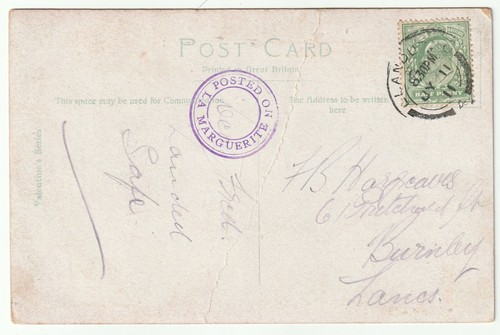 POST CARD
Printed in Great Britain
This space may be used for Communication.
The Address to be written here
Valentine's Series
POSTED ON
LA MARGUERITE
LLANDU
JY 11
11
HALFPENNY
Landed
Safe.
Fred.
F B Hargreaves
6 St
Burnley
Lancs.